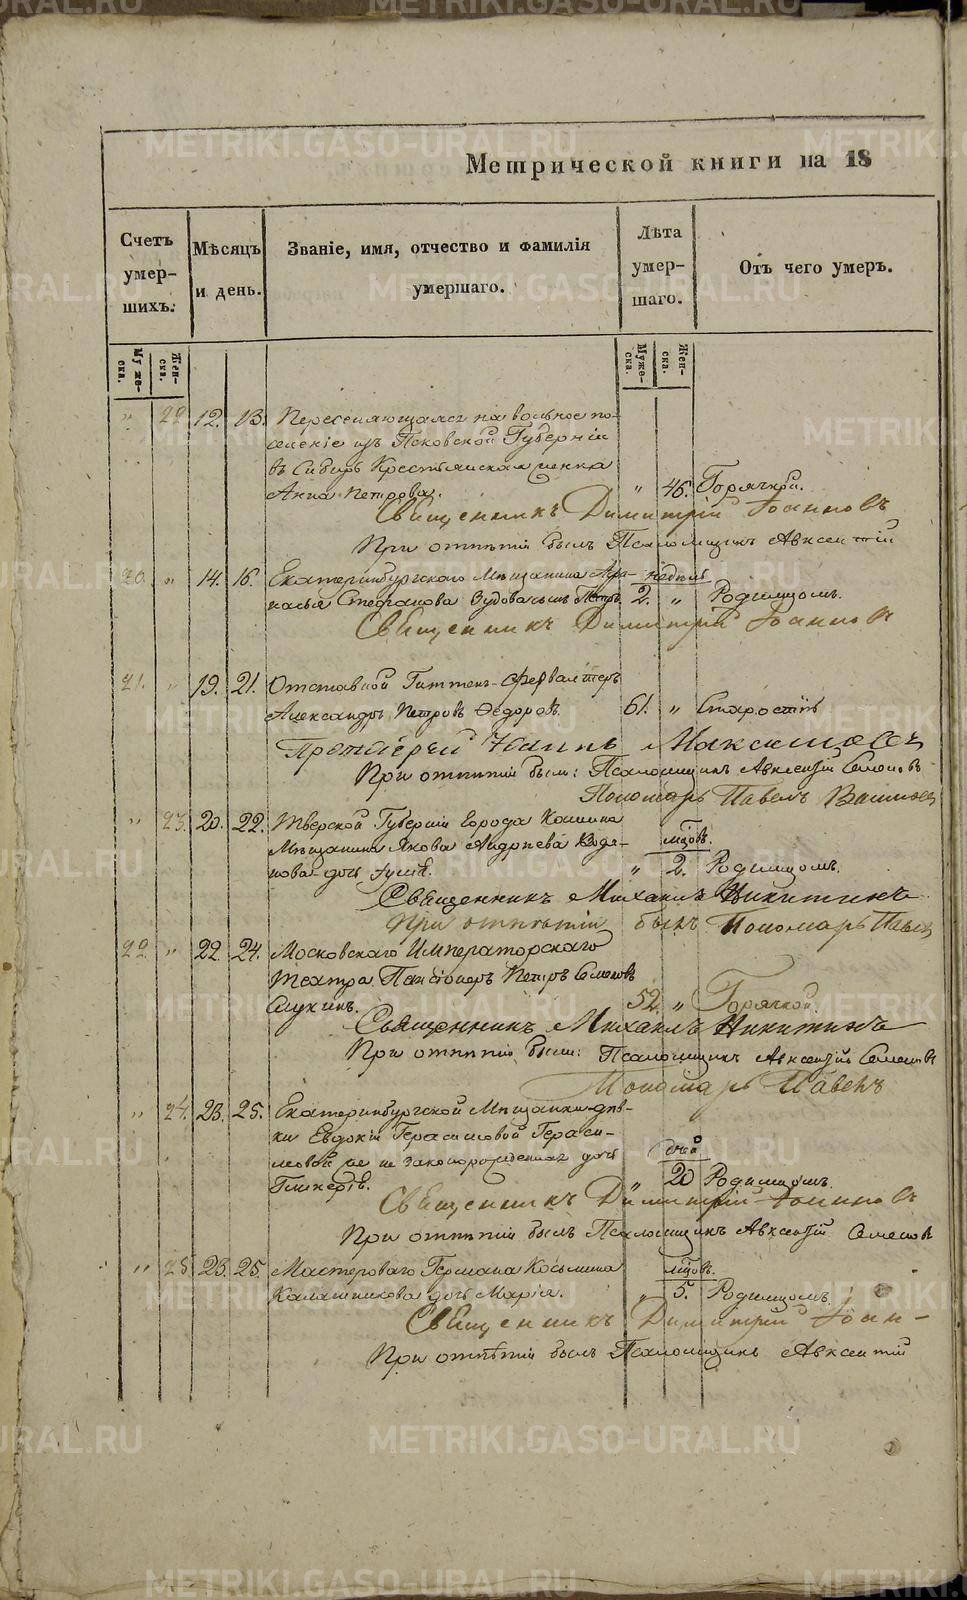 Метрической книги на 18
Счетъ умер-шихъ.
Мѣсяцъ и день.
Званіе, имя, отчество и фамилія умершаго.
Лѣта умер-шаго.
Отъ чего умеръ.
Муже-ска.
Жен-ска.
Муже-ска.
Жен-ска.
" 22 12. 13. Переселяющаяся на вольное по-
селеніе изъ Псковской Губерніи
въ Сибирь Крестьянская женка
Анна Петрова. " 46. Горячкой.
Священникъ Димитрій Іоанновъ
При отпѣтіи былъ Псаломщикъ Авксентій
20. " 14. 16. Екатеринбургскаго Мѣщанина Афа- недѣль
насья Степанова сынъ Петръ. 2. " Родимцомъ.
Священникъ Димитрій Іоанновъ
21. " 19. 21. Отставной Гиттенъ-Фервалтеръ
Александръ Петровъ Ѳедоровъ. 61. " Старостію
Протоіерей Іоаннъ Максимовъ
При отпѣтіи были: Псаломщикъ Авксентій Семеновъ
Пономарь Павелъ
" 23. 20. 22. Тверской Губерніи Города Кашина
Мѣщанина Якова Андреева мѣсяцовъ.
дочь " 2. Родимцомъ.
Священникъ Михаилъ Никитинъ
При отпѣтіи былъ Пономарь Павелъ
22. " 22. 24. Московскаго Императорскаго
театра Пансіонеръ Петръ Семеновъ
52. " Горячкой.
Священникъ Михаилъ Никитинъ
При отпѣтіи были: Псаломщикъ Авксентій Семеновъ
Пономарь Павелъ
" 24. 23. 25. Екатеринбургской Мѣщанки дѣв-
ки Евдокіи Герасимовой Гераси-
мовой же не законорожденная дочь дней
Гликерія. 20 Родимцомъ.
Священникъ Димитрій Іоанновъ
При отпѣтіи былъ Псаломщикъ Авксентій Семеновъ
" 25. 23. 25. Мастероваго Германа Косьмина мѣсяцовъ.
Калашникова дочь Марія. " 5. Родимцомъ.
Священникъ Димитрій Іоан-
При отпѣтіи былъ Псаломщикъ Авксентій
METRIKI.GASO-URAL.RU